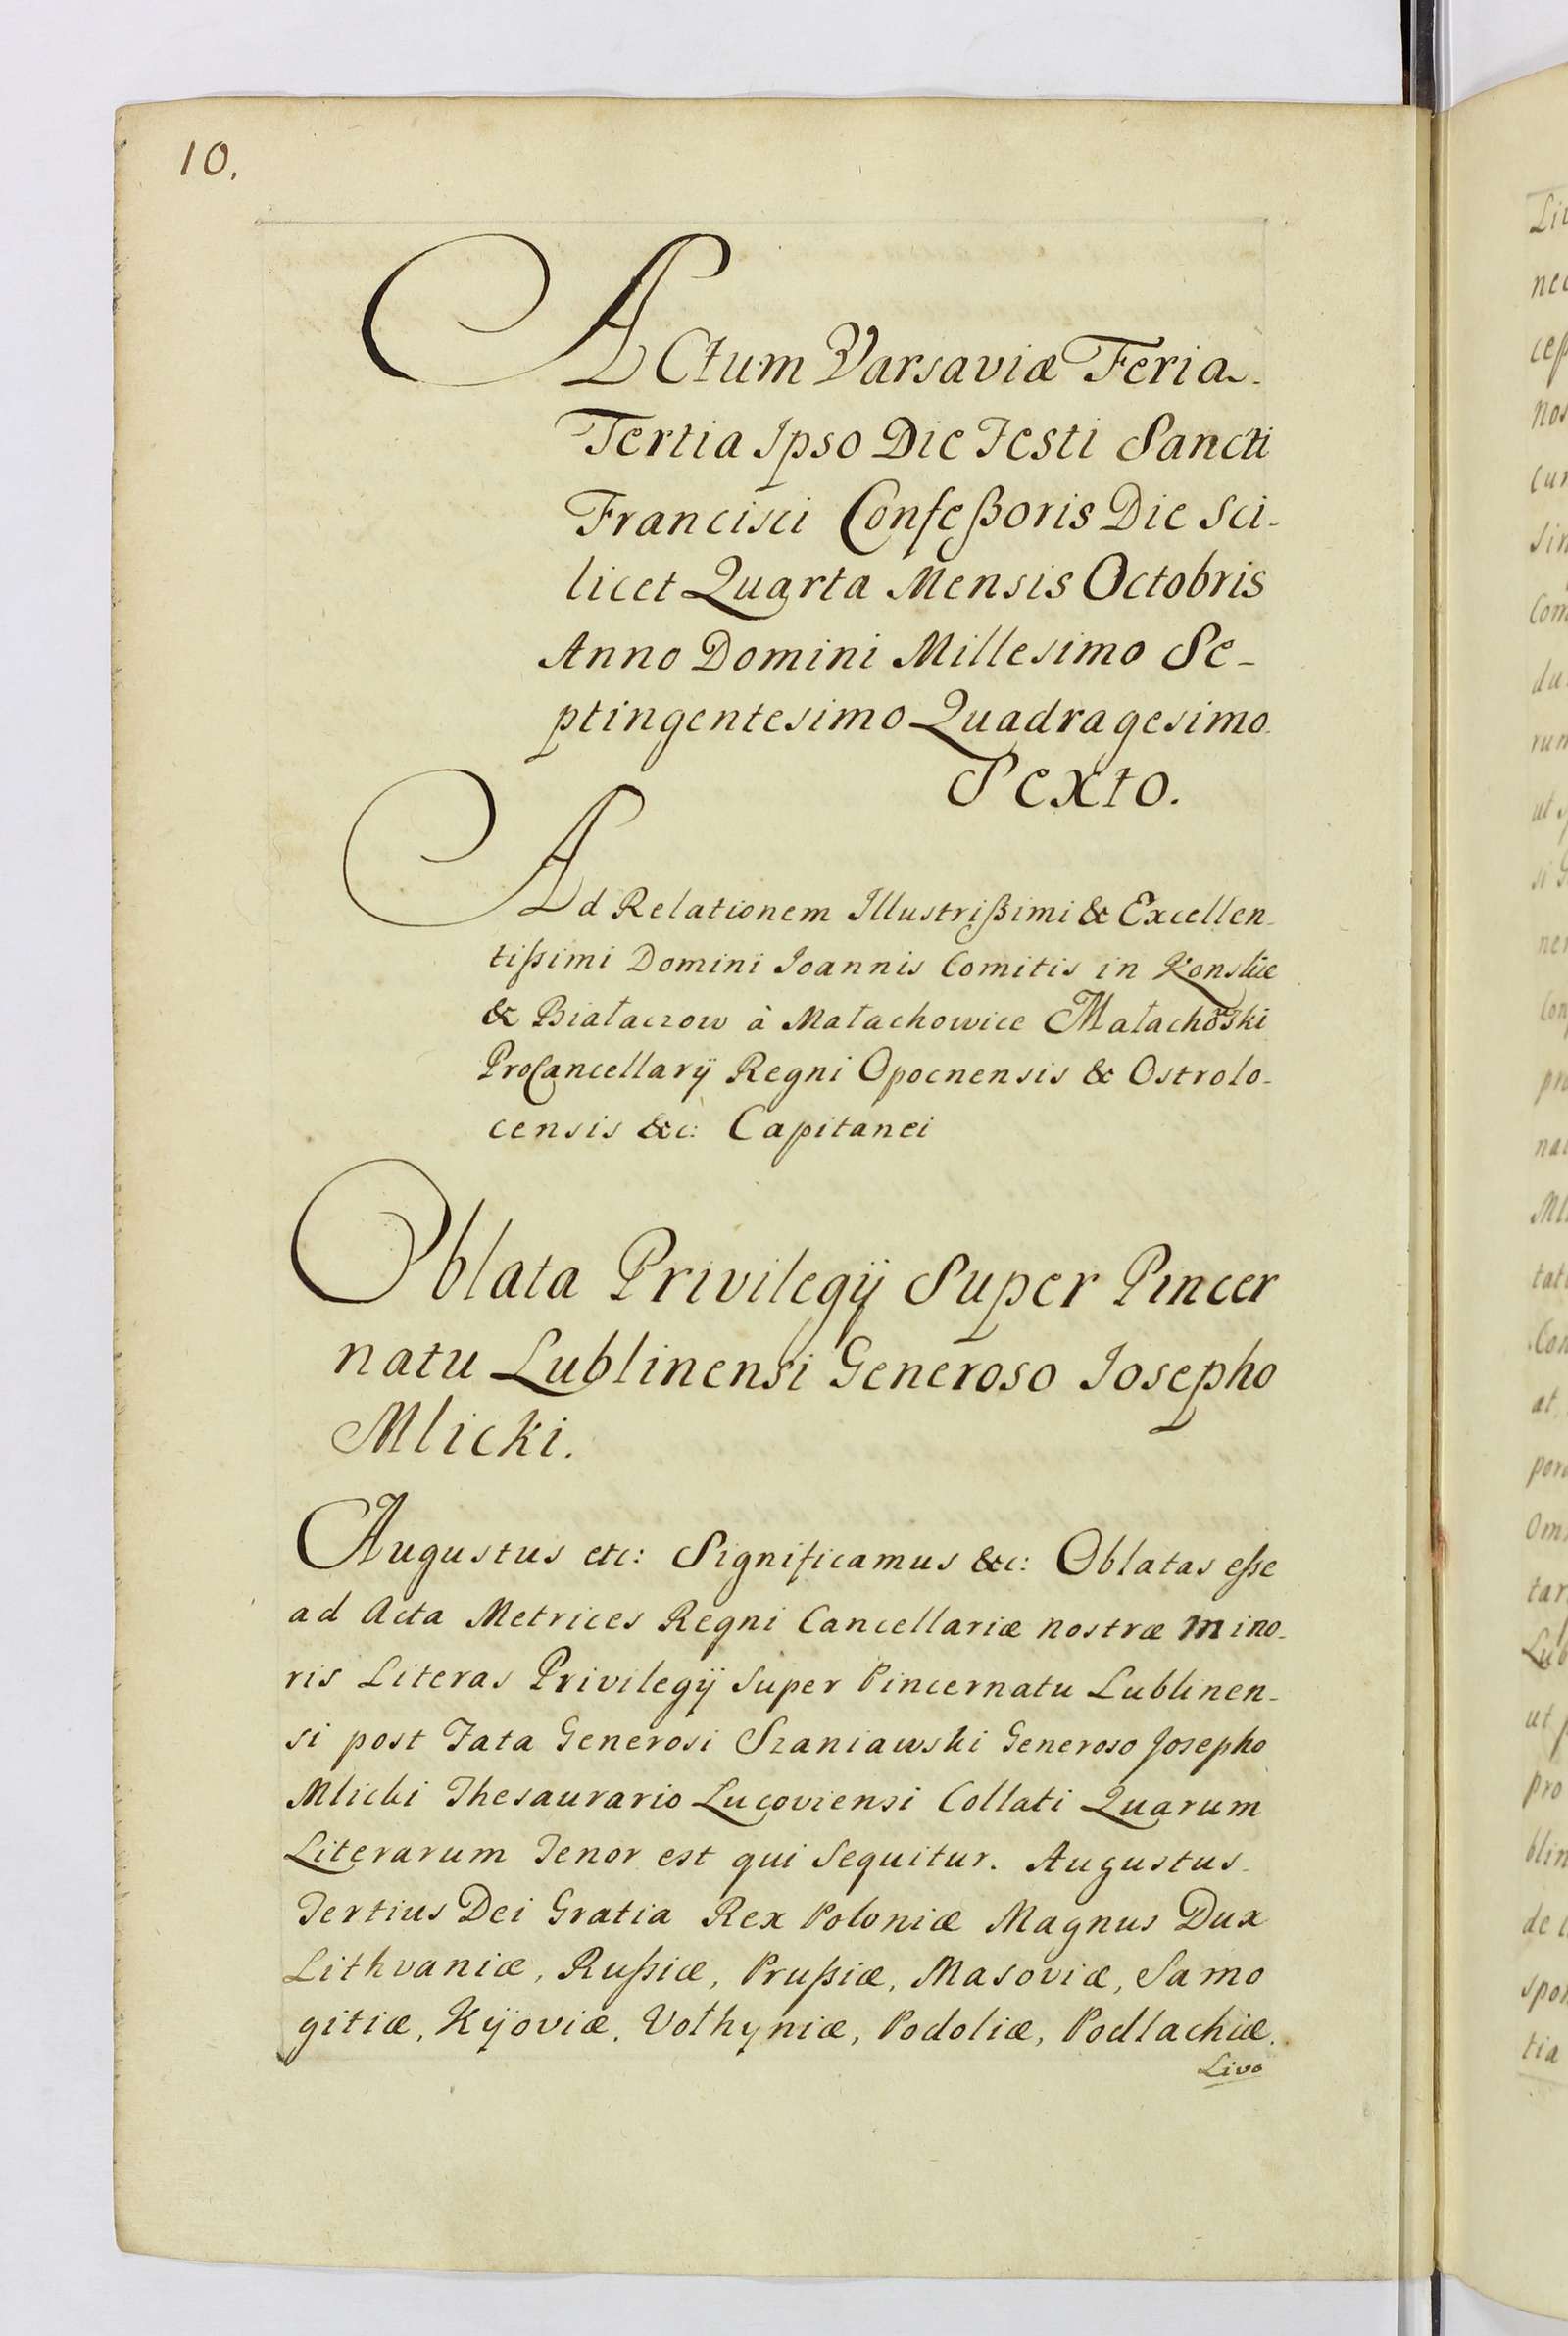 10.
ACtum Varsaviæ Feria
Tertia Ipso Die Festi Sancti
Francisci Confeßoris Die Sci-
licet Quarta Mensis Octobris
Anno Domini Millesimo Se-
ptingentesimo Quadragesimo
Sexto.
Ad Relationem Illustrißimi & Excellen-
tißimi Domini Ioannis Comitis in
& Białaczow à Małachowice Małachoski
ProCancellarij Regni Opocnensis & Ostrolo-
censis &c: Capitanei
Oblata Privilegij Super Pincer
natu Lublinensi Generoso Iosepho
Mlicki.
Augustus etc: Significamus &c: Oblatas eße
ad Acta Metrices Regni Cancellariæ nostræ mino-
ris Literas Privilegij Super Pincernatu Lublinen-
si post Fata Generosi Szaniawski Generoso Josepho
Mlicki Thesaurario Lucoviensi Collati Quarum
Literarum Tenor est qui Sequitur. Augustus
Tertius Dei Gratia Rex Poloniæ Magnus Dux
Lithvaniæ, Rußiæ, Prußiæ, Masoviæ, Samo
gitiæ, Kijoviæ, Vołhyniæ, Podoliæ, Podlachiæ,
Livo